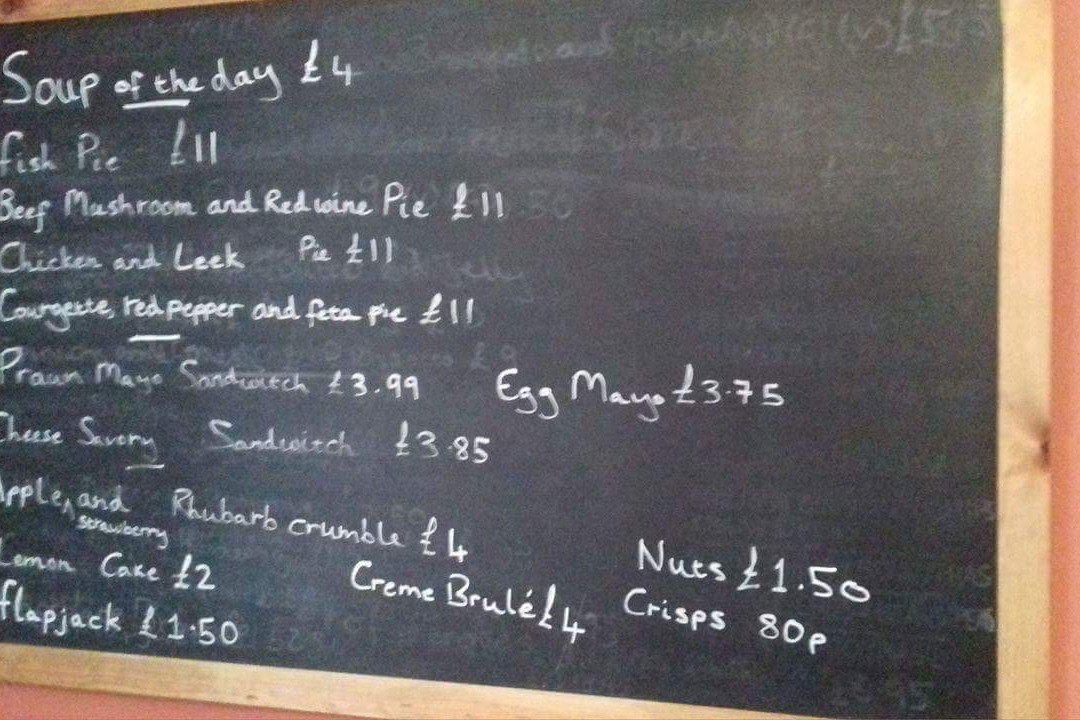 Soup of the day £4
fish Pie £11
Beef Mushroom and Red wine Pie £11
Chicken and Leek Pie £11
Courgette, red pepper and feta pie £11
Prawn Mayo Sandwitch £3.99 Egg Mayo £3.75
Cheese Savory Sandwitch £3.85
Apple, and Rhubarb crumble £4
strawberry
Lemon Cake £2 Creme Brulé £4 Nuts £1.50
flapjack £1.50 Crisps 80p